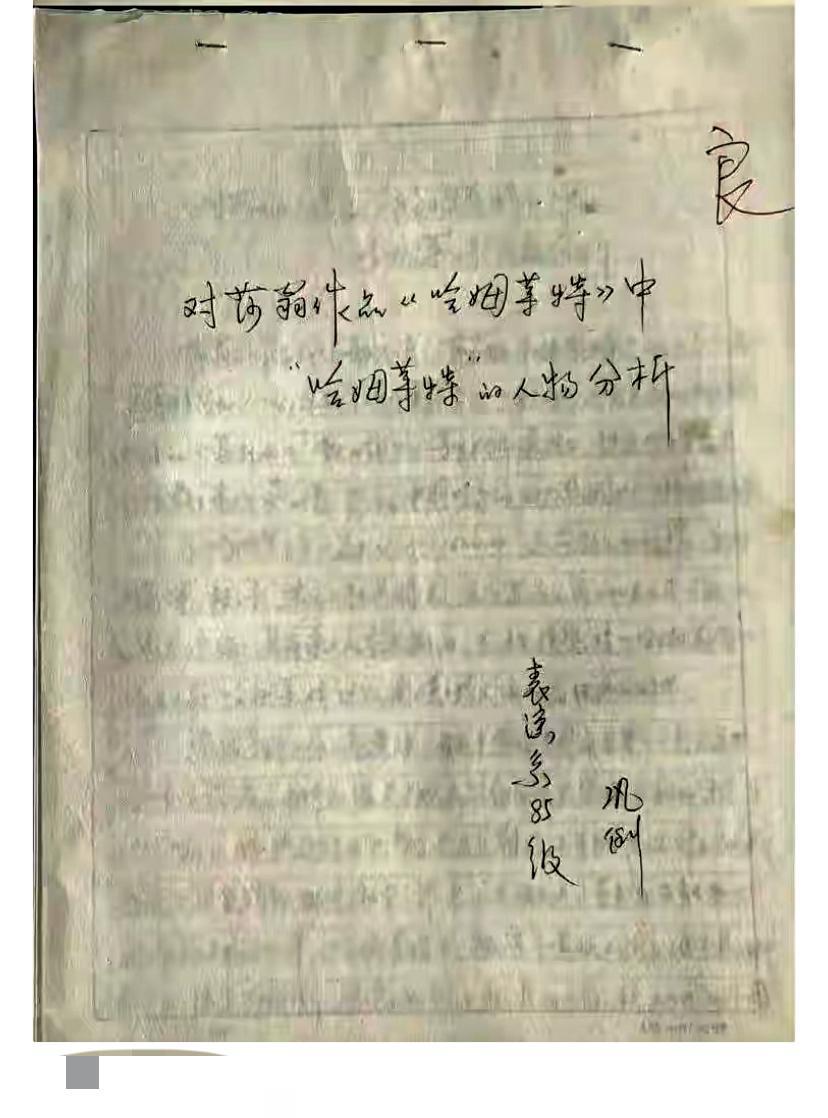 良
对莎翁作品《哈姆莱特》中
“哈姆莱特”的人物分析
表演系85级
巩俐